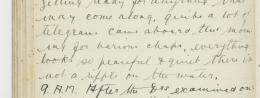 getting ready for anything that
may come along, quite a lot of
telegrams came aboard, this morn
ing for various chaps, everything
looks so peaceful & quiet there is
not a ripple on the water,
9. A.M. After the Drs examined on